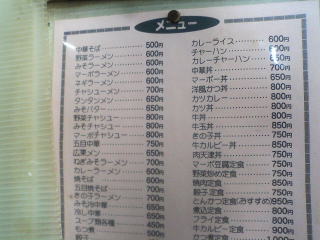 メニュー
中華そば 500円
野菜ラーメン 600円
みそラーメン 600円
マーボラーメン 600円
ネギラーメン 600円
チャシューメン 700円
タンタンメン 650円
みそバター 650円
野菜チャシュー 800円
みそチャシュー 800円
マーボチャシュー 800円
五目中華 750円
広東メン 750円
ねぎみそラーメン 650円
カレーラーメン 600円
焼そば 600円
五目焼そば 700円
きの子ラーメン 700円
みそ冷中華 650円
冷し中華 650円
スープ類各種 450円
もつ煮 500円
餃子
カレーライス 600円
チャーハン 600円
カレーチャーハン 650円
中華丼 700円
マーボー丼 650円
洋風かつ丼 800円
カツカレー 800円
カツ丼 800円
牛丼 800円
牛玉丼 850円
きの子丼 750円
牛カルビー丼 850円
肉天津丼 750円
マーボ豆腐定食 750円
野菜炒め定食 750円
焼肉定食 850円
餃子定食 750円
とんかつ定食(おすすめ) 950円
煮込定食 800円
フライ定食 800円
牛カルビー定食 900円
1000円